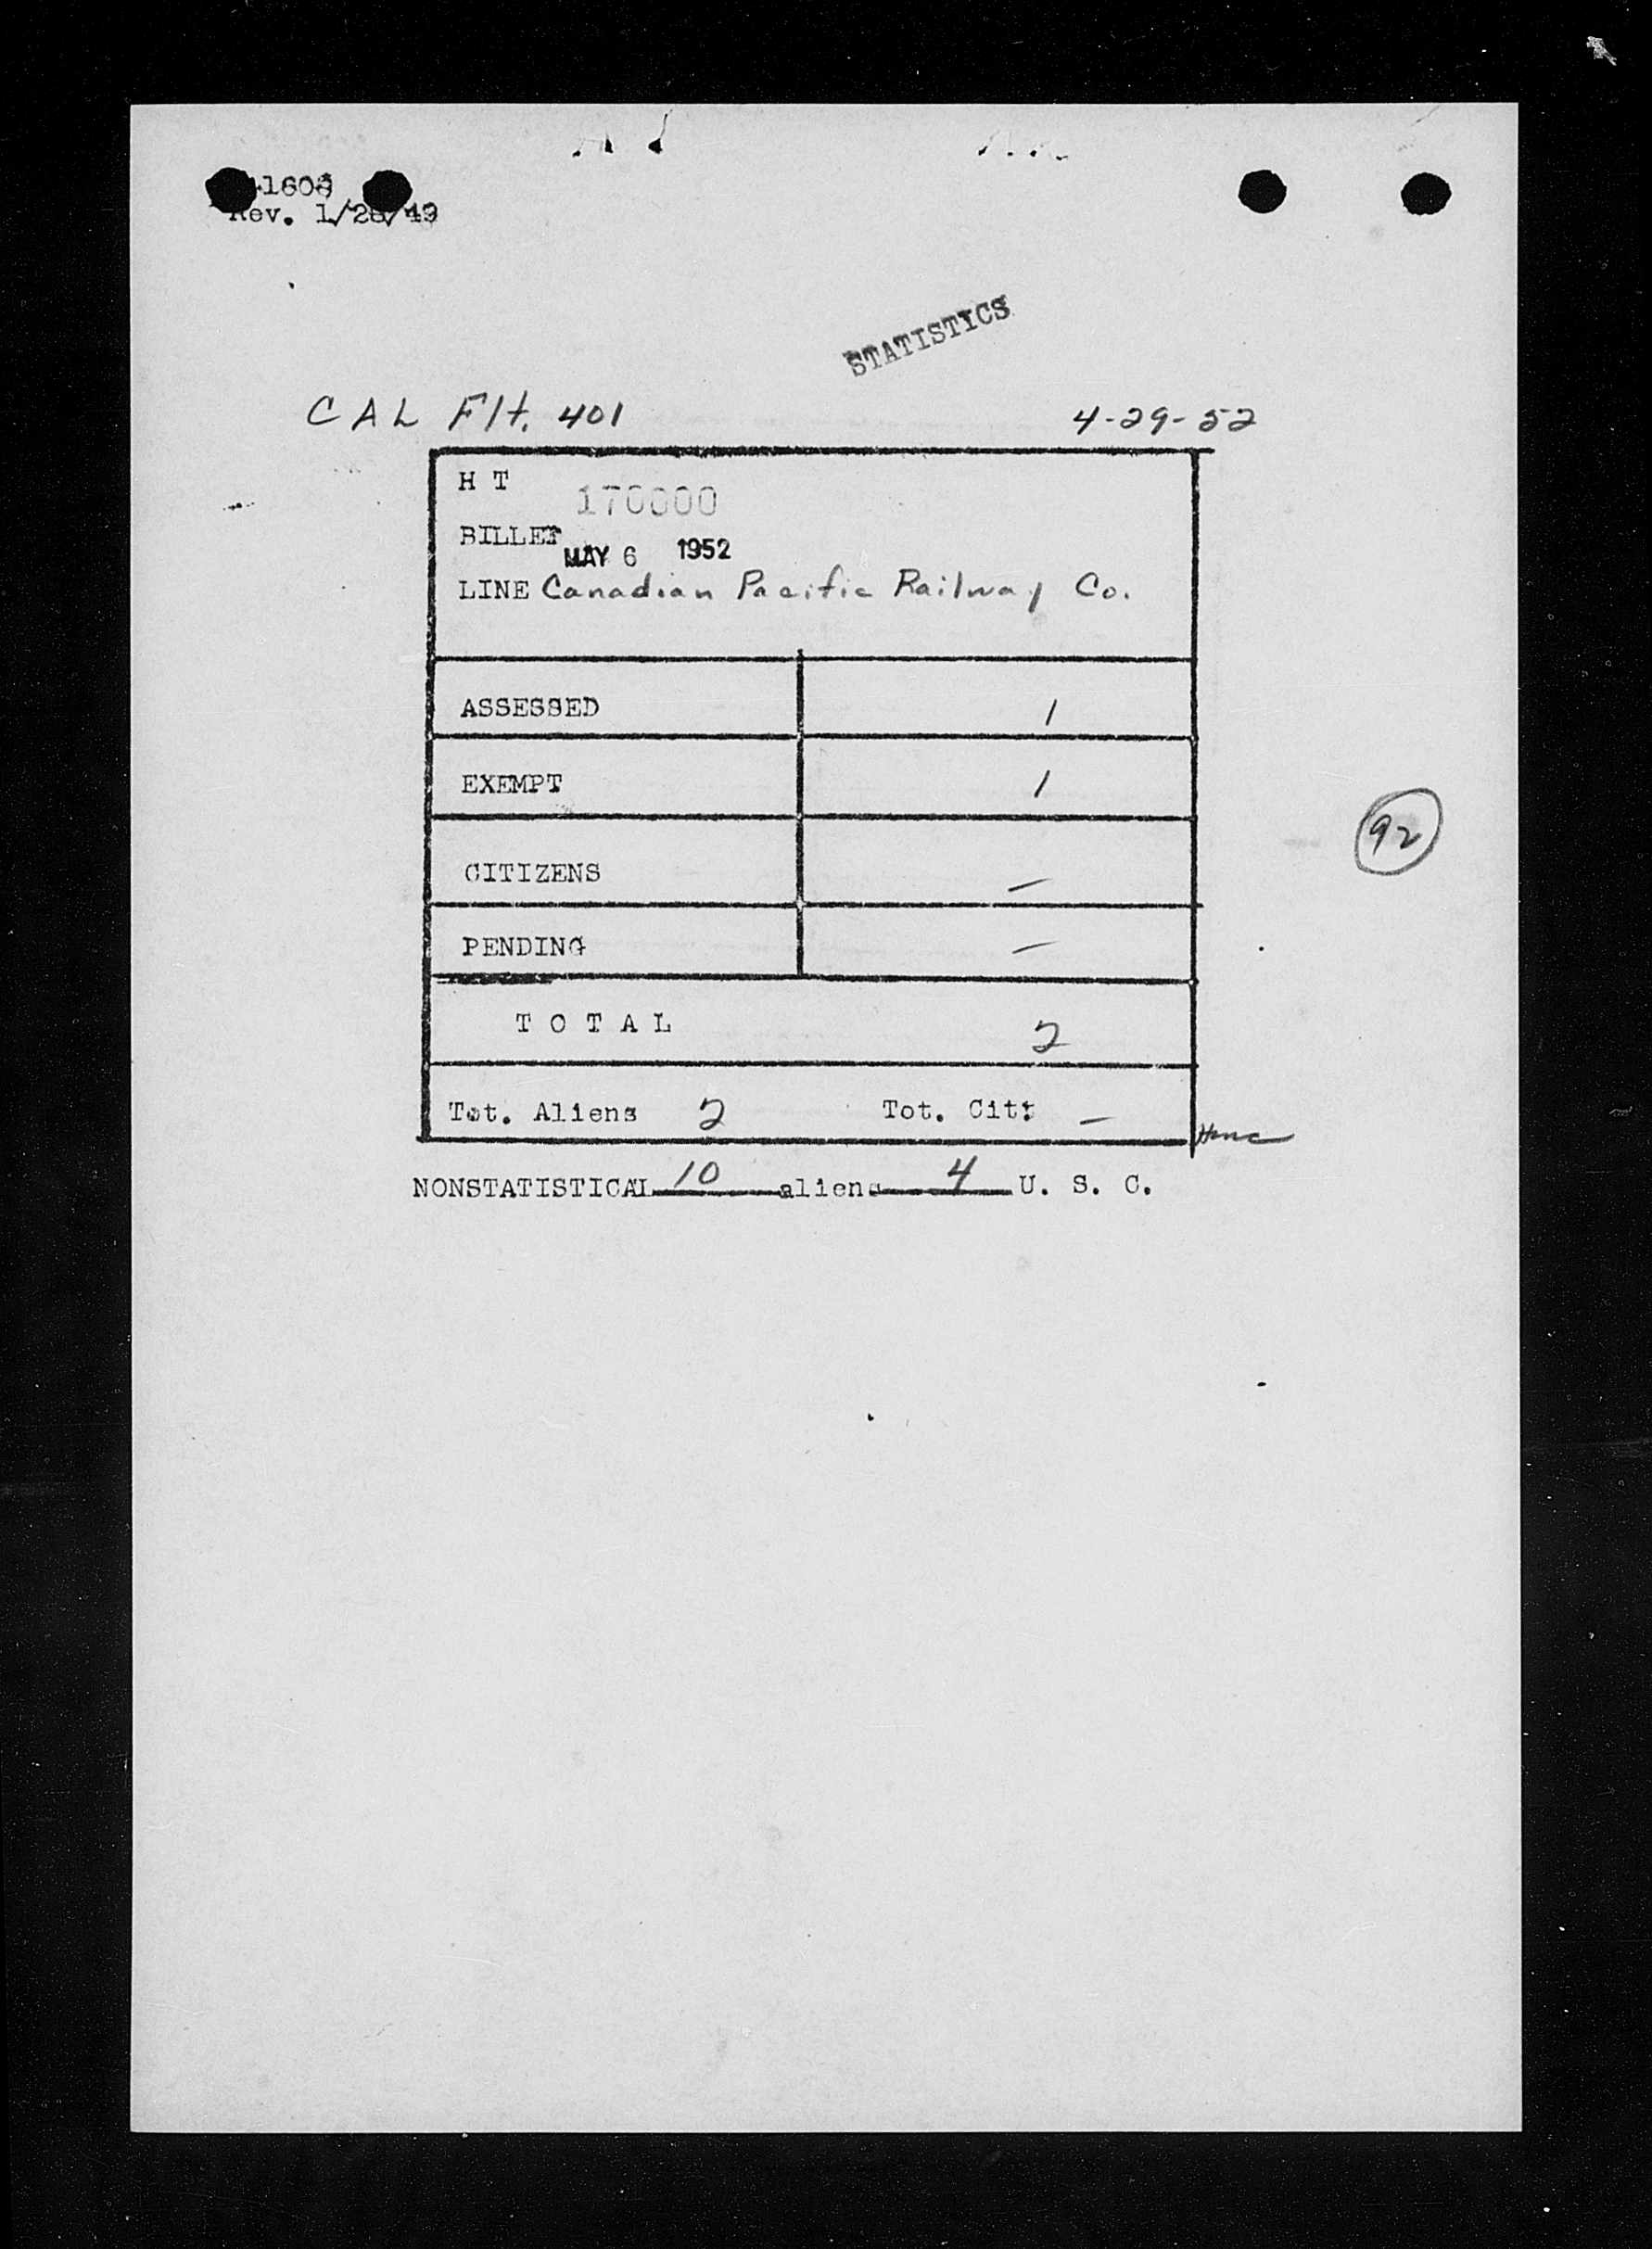 1608
Rev. 1/28/49
STATISTICS
CAL Flt. 401 4-29-52
H T 170000
BILLET MAY 6 1952
LINE Canadian Pacific Railway Co.
ASSESSED 1
EXEMPT 1
92
CITIZENS —
PENDING —
T O T A L 2
Tot. Aliens 2 Tot. Cit: —
NONSTATISTICAL 10 aliens 4 U. S. C.